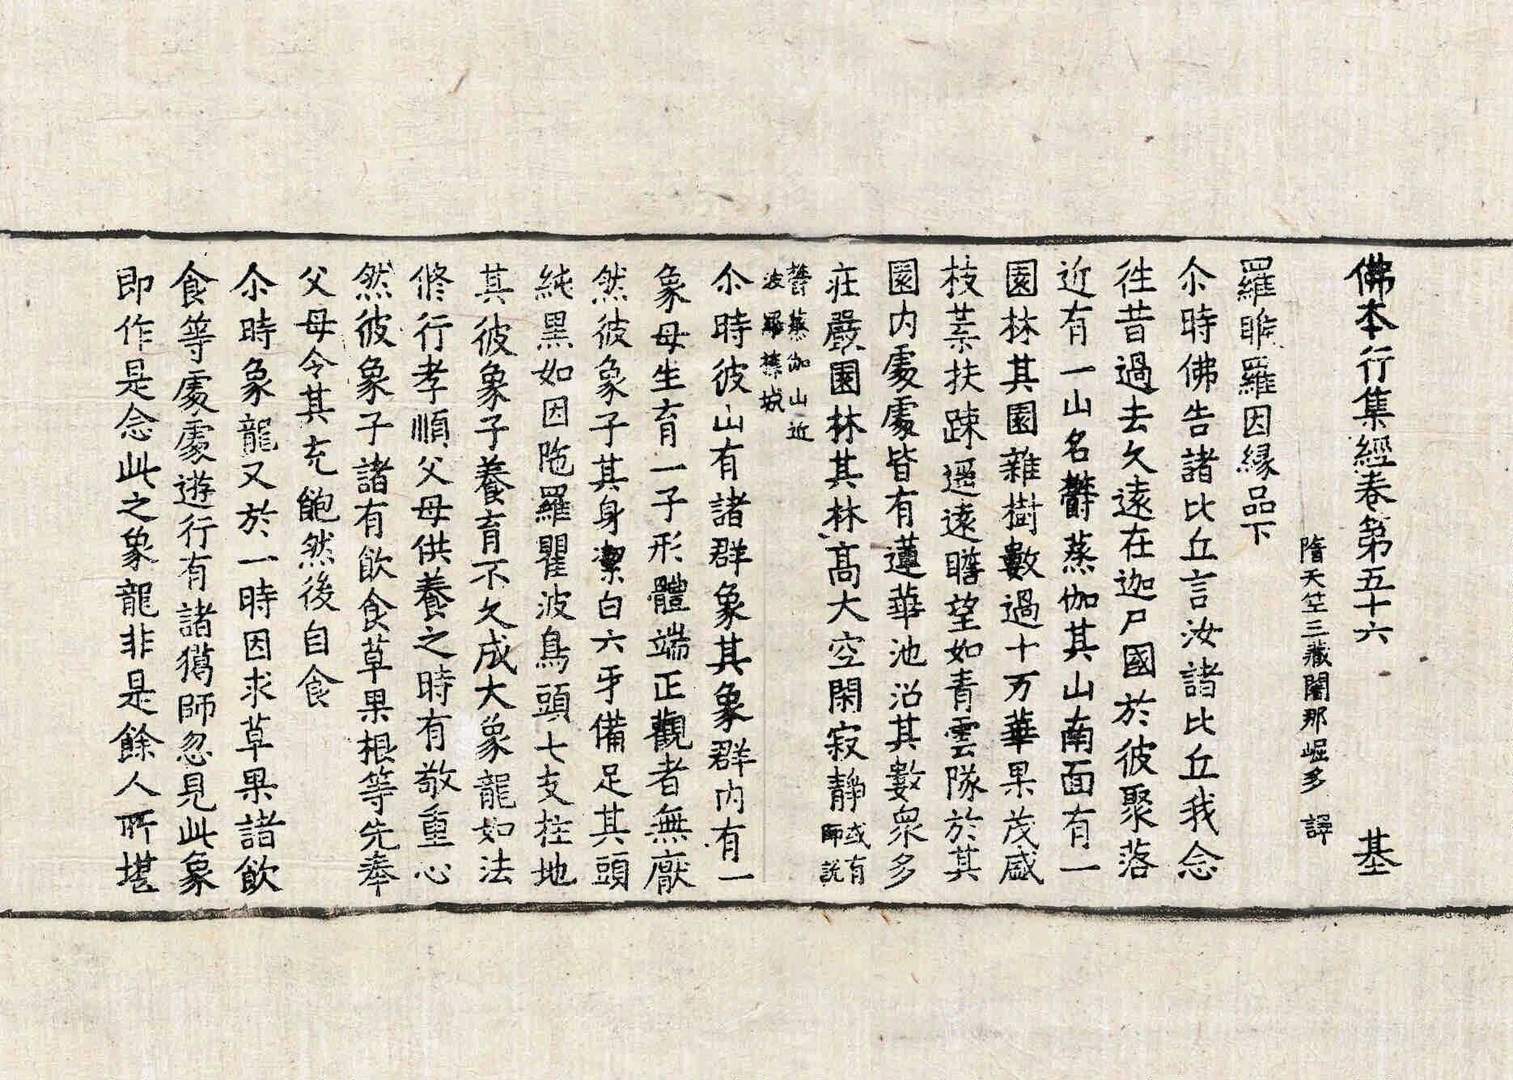 佛本行集經卷第五十六 基
隋天竺三藏闍那崛多 譯
羅睺羅因緣品下
尒時佛告諸比丘言汝諸比丘我念
徃昔過去久遠在迦尸國於彼聚落
近有一山名欝蒸伽其山南面有一
園林其園雜樹數過十万華果茂盛
枝葉扶踈遥遠瞻望如青雲隊於其
園内處處皆有蓮華池沼其數衆多
莊嚴園林其林髙大空閑寂静或有師説
欝蒸伽山近
波羅㮈城
尒時彼山有諸群象其象群内有一
象母生育一子形體端正觀者無厭
然彼象子其身潔白六牙備足其頭
純黒如因陁羅瞿波鳥頭七支拄地
其彼象子養育不久成大象龍如法
修行孝順父母供養之時有敬重心
然彼象子諸有飲食草果根等先奉
父母令其充飽然後自食
尒時象龍又於一時因求草果諸飲
食等處處遊行有諸獦師忽見此象
即作是念此之象龍非是餘人所堪